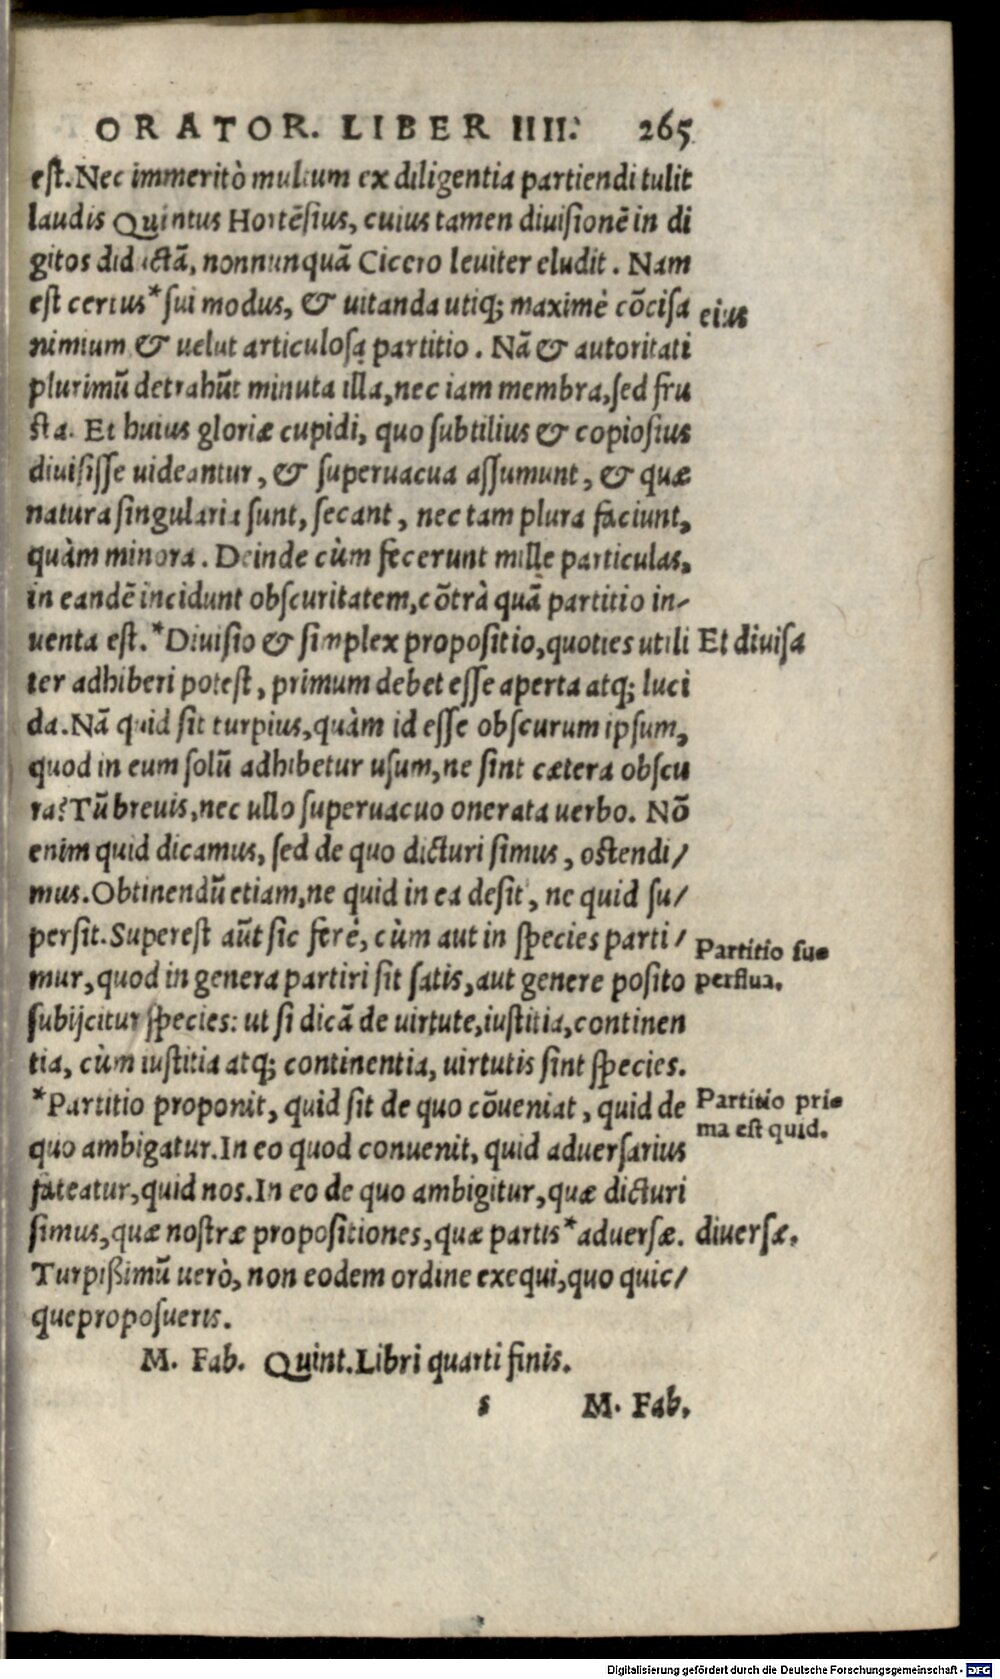 ORATOR. LIBER IIII. 265
est. Nec immeritò multum ex diligentia partiendi tulit
laudis Quintus Hortēsius, cuius tamen diuisionē in di
gitos diductā, nonnunquā Cicero leuiter eludit. Nam
est certus* sui modus, & uitanda utiq; maximè cōcisa eius
nimium & uelut articulosa partitio. Nā & autoritati
plurimū detrahūt minuta illa, nec iam membra, sed fru
sta. Et huius gloriæ cupidi, quo subtilius & copiosius
diuisisse uideantur, & superuacua assumunt, & quæ
natura singularia sunt, secant, nec tam plura faciunt,
quàm minora. Deinde cùm fecerunt mille particulas,
in eandē incidunt obscuritatem, cōtrà quā partitio in-
uenta est. *Diuisio & simplex propositio, quoties utili Et diuisa
ter adhiberi potest, primum debet esse aperta atq; luci
da. Nā quid sit turpius, quàm id esse obscurum ipsum,
quod in eum solū adhibetur usum, ne sint cætera obscu
ra? Tū breuis, nec ullo superuacuo onerata uerbo. Nō
enim quid dicamus, sed de quo dicturi simus, ostendi/
mus. Obtinendū etiam, ne quid in ea desit, ne quid su/
persit. Superest aūt sic ferè, cùm aut in species parti/ Partitio su=
mur, quod in genera partiri sit satis, aut genere posito perflua.
subijcitur species: ut si dicā de uirtute, iustitia, continen
tia, cùm iustitia atq; continentia, uirtutis sint species.
*Partitio proponit, quid sit de quo cōueniat, quid de Partitio pri=
quo ambigatur. In eo quod conuenit, quid aduersarius ma est quid.
fateatur, quid nos. In eo de quo ambigitur, quæ dicturi
simus, quæ nostræ propositiones, quæ partis* aduersæ. diuersæ.
Turpißimū uerò, non eodem ordine exequi, quo quic/
que proposueris.
M. Fab. Quint. Libri quarti finis.
s M. Fab.
Digitalisierung gefördert durch die Deutsche Forschungsgemeinschaft - DFG